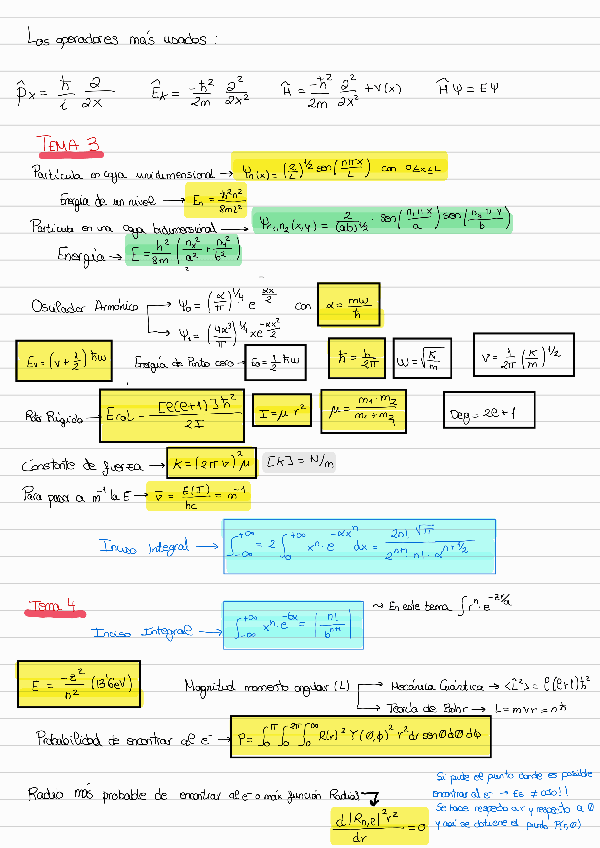 Los operadores más usados:
p̂x = ħ/i ∂/∂x   Êk = -ħ²/2m ∂²/∂x²   Ĥ = -ħ²/2m ∂²/∂x² + V(x)   Ĥψ = Eψ
TEMA 3
Partícula en caja unidimensional → Ψn(x) = (2/L)^1/2 sen(nπx/L) con 0≤x≤L
Energía de un nivel → En = h²n²/8mL²
Partícula en una caja bidimensional → Ψn1,n2(x,y) = 2/(ab)^1/2 · sen(n1πx/a) sen(n2πy/b)
Energía → E = h²/8m (nx²/a² + ny²/b²)
Oscilador Armónico → Ψ0 = (α/π)^1/4 e^-αx²/2 con α = mω/ħ
→ Ψ1 = (4α³/π)^1/4 x e^-αx²/2
Ev = (v + 1/2) ħω   Energía de Punto cero → E0 = 1/2 ħω   ħ = h/2π   ω = √(K/m)   ν = 1/2π (K/m)^1/2
Roto Rígido → Erot = [ℓ(ℓ+1)]ħ²/2I   I = μ r²   μ = m1·m2/m1+m2   Deg = 2ℓ+1
Constante de fuerza → K = (2πν)²μ   [K] = N/m
Para pasar a m⁻¹ la E → ν̄ = E(J)/hc = m⁻¹
Inciso Integral → ∫-∞^+∞ = 2∫0^+∞ xⁿ·e^-αx² dx = 2n! √π / 2^n+1 n! · α^n+1/2
Tema 4
~ En este tema ∫rⁿ·e^-2r/a
Inciso Integral → ∫-∞^+∞ xⁿ·e^-bx = | n!/b^n+1 |
E = -z²/n² (13'6eV)   Magnitud momento angular (L) → Mecánica Cuántica → <L̂²> = ℓ(ℓ+1)ħ²
→ Teoría de Bohr → L = mvr = nħ
Probabilidad de encontrar al e⁻ → P = ∫0^π ∫0^2π ∫0^+∞ R(r)² Y(θ,ϕ)² r² dr senθ dθ dϕ
Radio más probable de encontrar al e⁻ o máx función Radial
d|Rn,ℓ|² r²/dr = 0
Si pide el punto donde es posible
encontrar al e⁻ → Es ≠ caso!!
Se hace respecto a r y respecto a θ
y así se obtiene el punto P(r,θ)